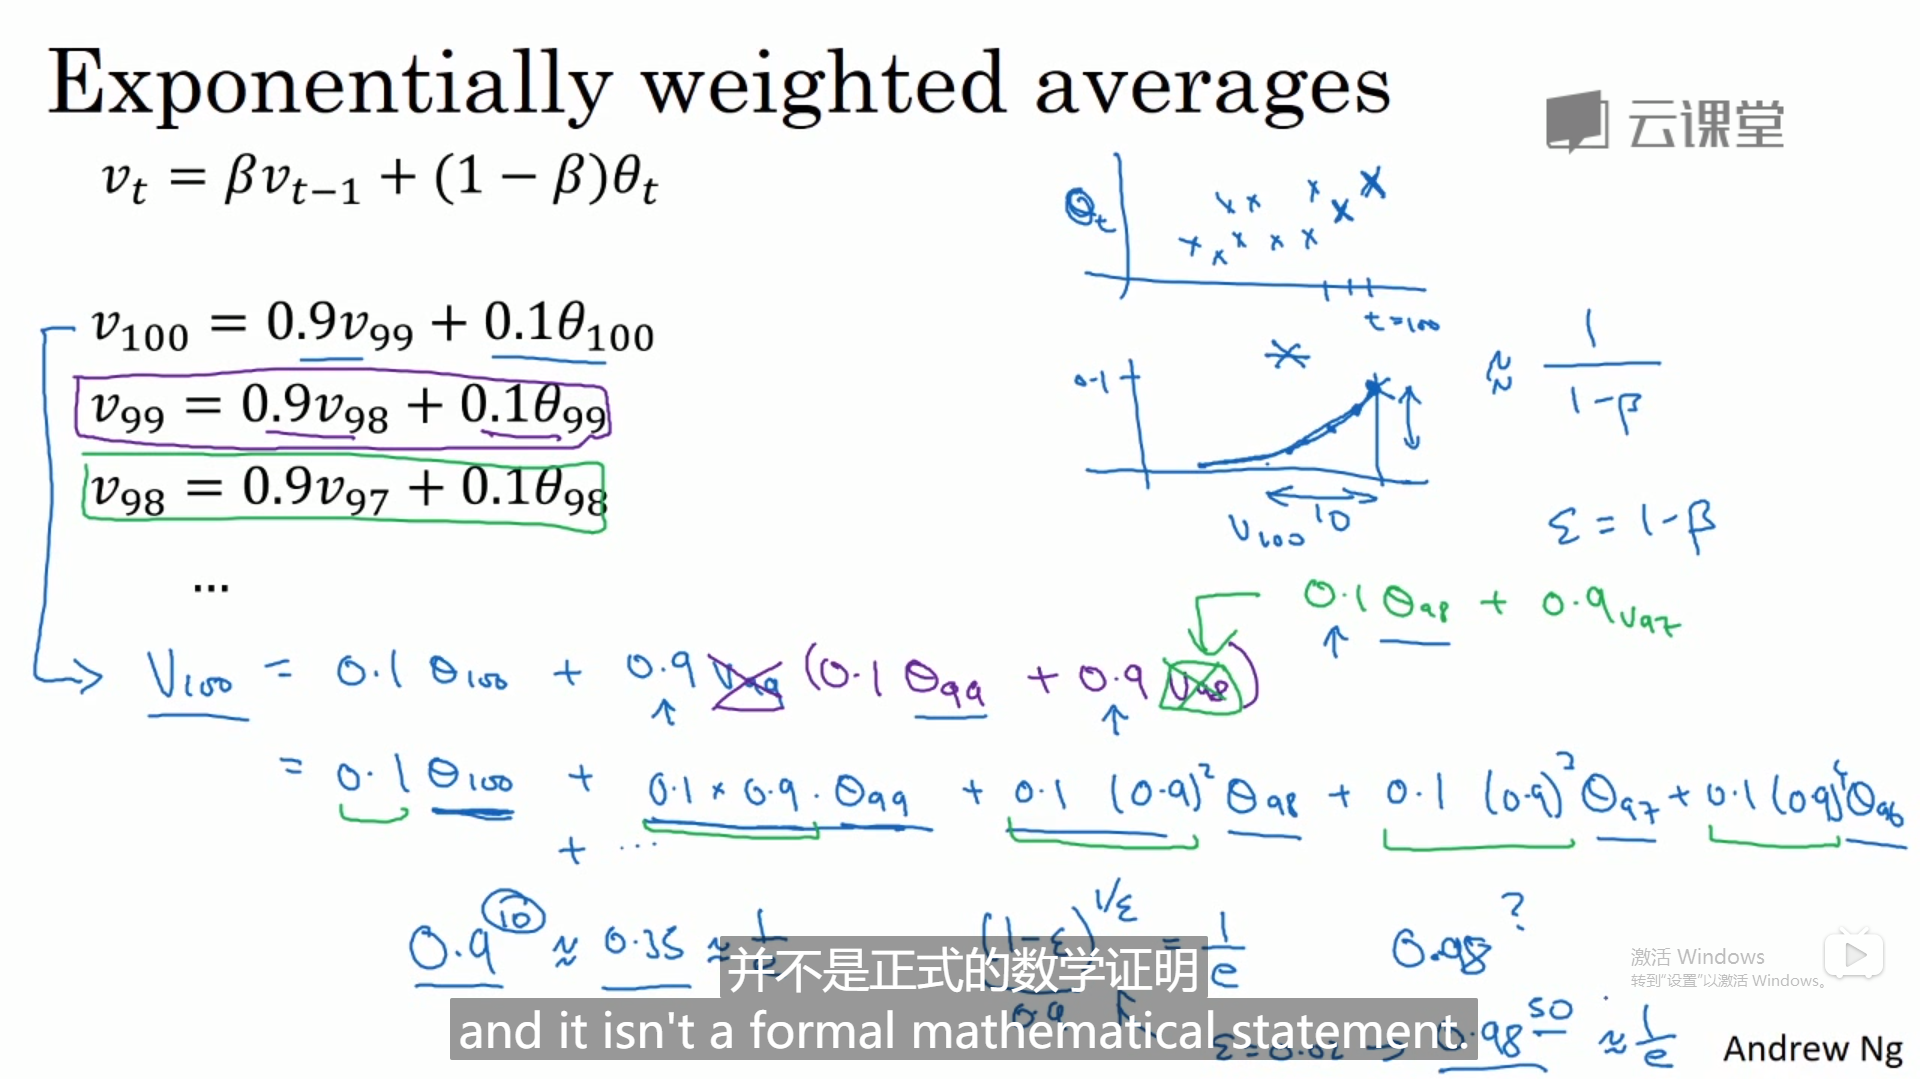 Exponentially weighted averages
云课堂
vₜ = βvₜ₋₁ + (1 − β)θₜ
θₜ
t=100
v₁₀₀ = 0.9v₉₉ + 0.1θ₁₀₀
v₉₉ = 0.9v₉₈ + 0.1θ₉₉
v₉₈ = 0.9v₉₇ + 0.1θ₉₈
...
0.1
10
V₁₀₀
≈ 1/(1-β)
ε = 1-β
0.1 θ₉₈ + 0.9 v₉₇
V₁₀₀ = 0.1 θ₁₀₀ + 0.9 v₉₉ (0.1 θ₉₉ + 0.9 v₉₈)
= 0.1 θ₁₀₀ + 0.1 × 0.9 · θ₉₉ + 0.1 (0.9)² θ₉₈ + 0.1 (0.9)³ θ₉₇ + 0.1 (0.9)⁴ θ₉₆
+ ...
0.9¹⁰ ≈ 0.35 ≈ 1/e
(1-ε)^(1/ε) = 1/e
0.9
0.98^?
ε = 0.02 → 0.98⁵⁰ ≈ 1/e
并不是正式的数学证明
and it isn't a formal mathematical statement.
激活 Windows
转到"设置"以激活 Windows。
Andrew Ng